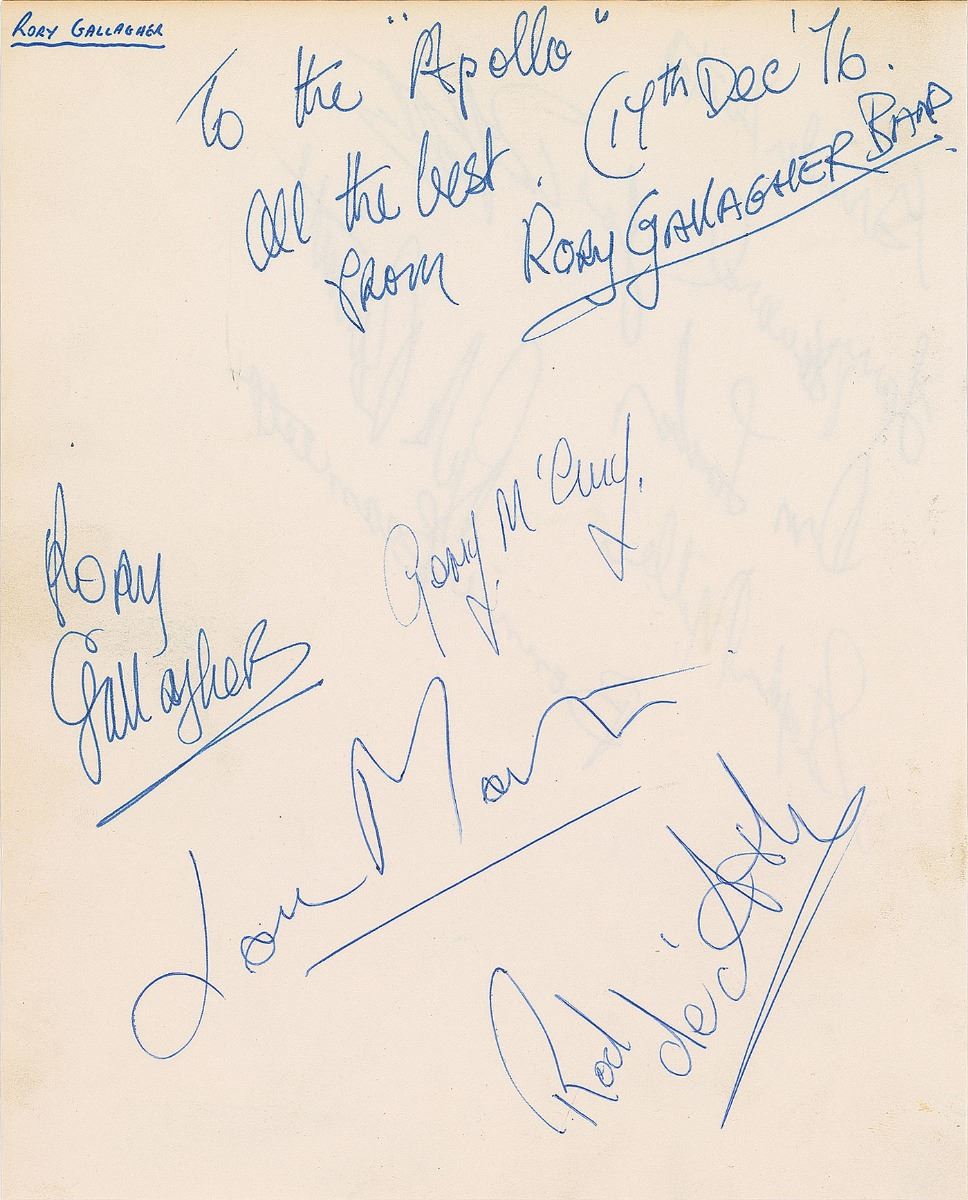 RORY GALLAGHER
To the "Apollo"
All the best. (14th Dec '76.
FROM RORY GALLAGHER BAND.
Rory
Gallagher
Gerry M'Avoy.
Lou Martin
Rod
de'Ath